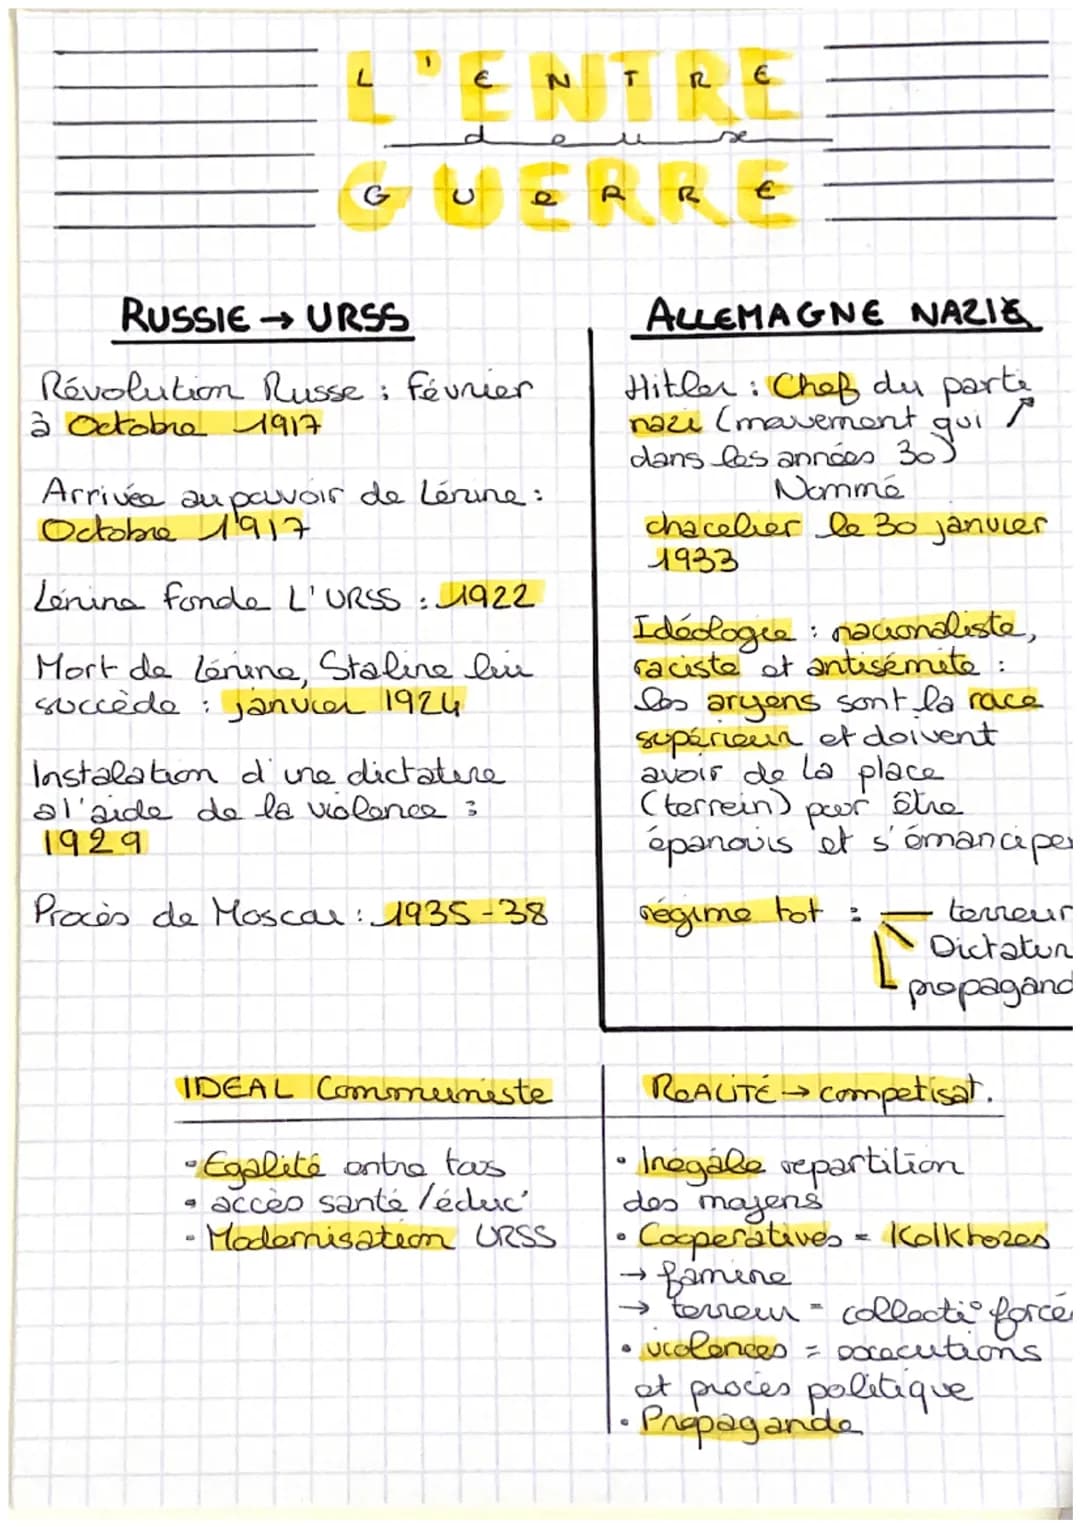 L'ENTRE
deux
GUERRE
RUSSIE → URSS
Révolution Russe : Février
à Octobre 1917
Arrivée au pouvoir de Lénine :
Octobre 1917
Lénine fonde L'URSS : 1922
Mort de Lénine, Staline lui
succède : janvier 1924
Instalation d'une dictature
a l'aide de la violence :
1929
Procès de Moscou : 1935-38
ALLEMAGNE NAZIE
Hitler : Chef du parti
nazi (mouvement qui ↗
dans les années 30)
Nommé
chacelier le 30 janvier
1933
Idéologie : nationaliste,
raciste et antisémite :
les aryens sont la race
supérieur et doivent
avoir de la place
(terrein) pour être
épanouis et s'émanciper
régime tot : — terreur
Dictatur
propagand
IDEAL Communiste
• Egalité entre tous
• accès santé /éduc'
• Modernisation URSS
REALITÉ → competisat.
• Inégale repartition
des moyens
• Cooperatives = Kolkhozes
→ famine
→ terreur = collecti° forcé
• violences = execcutions
et procès politique
• Propagande